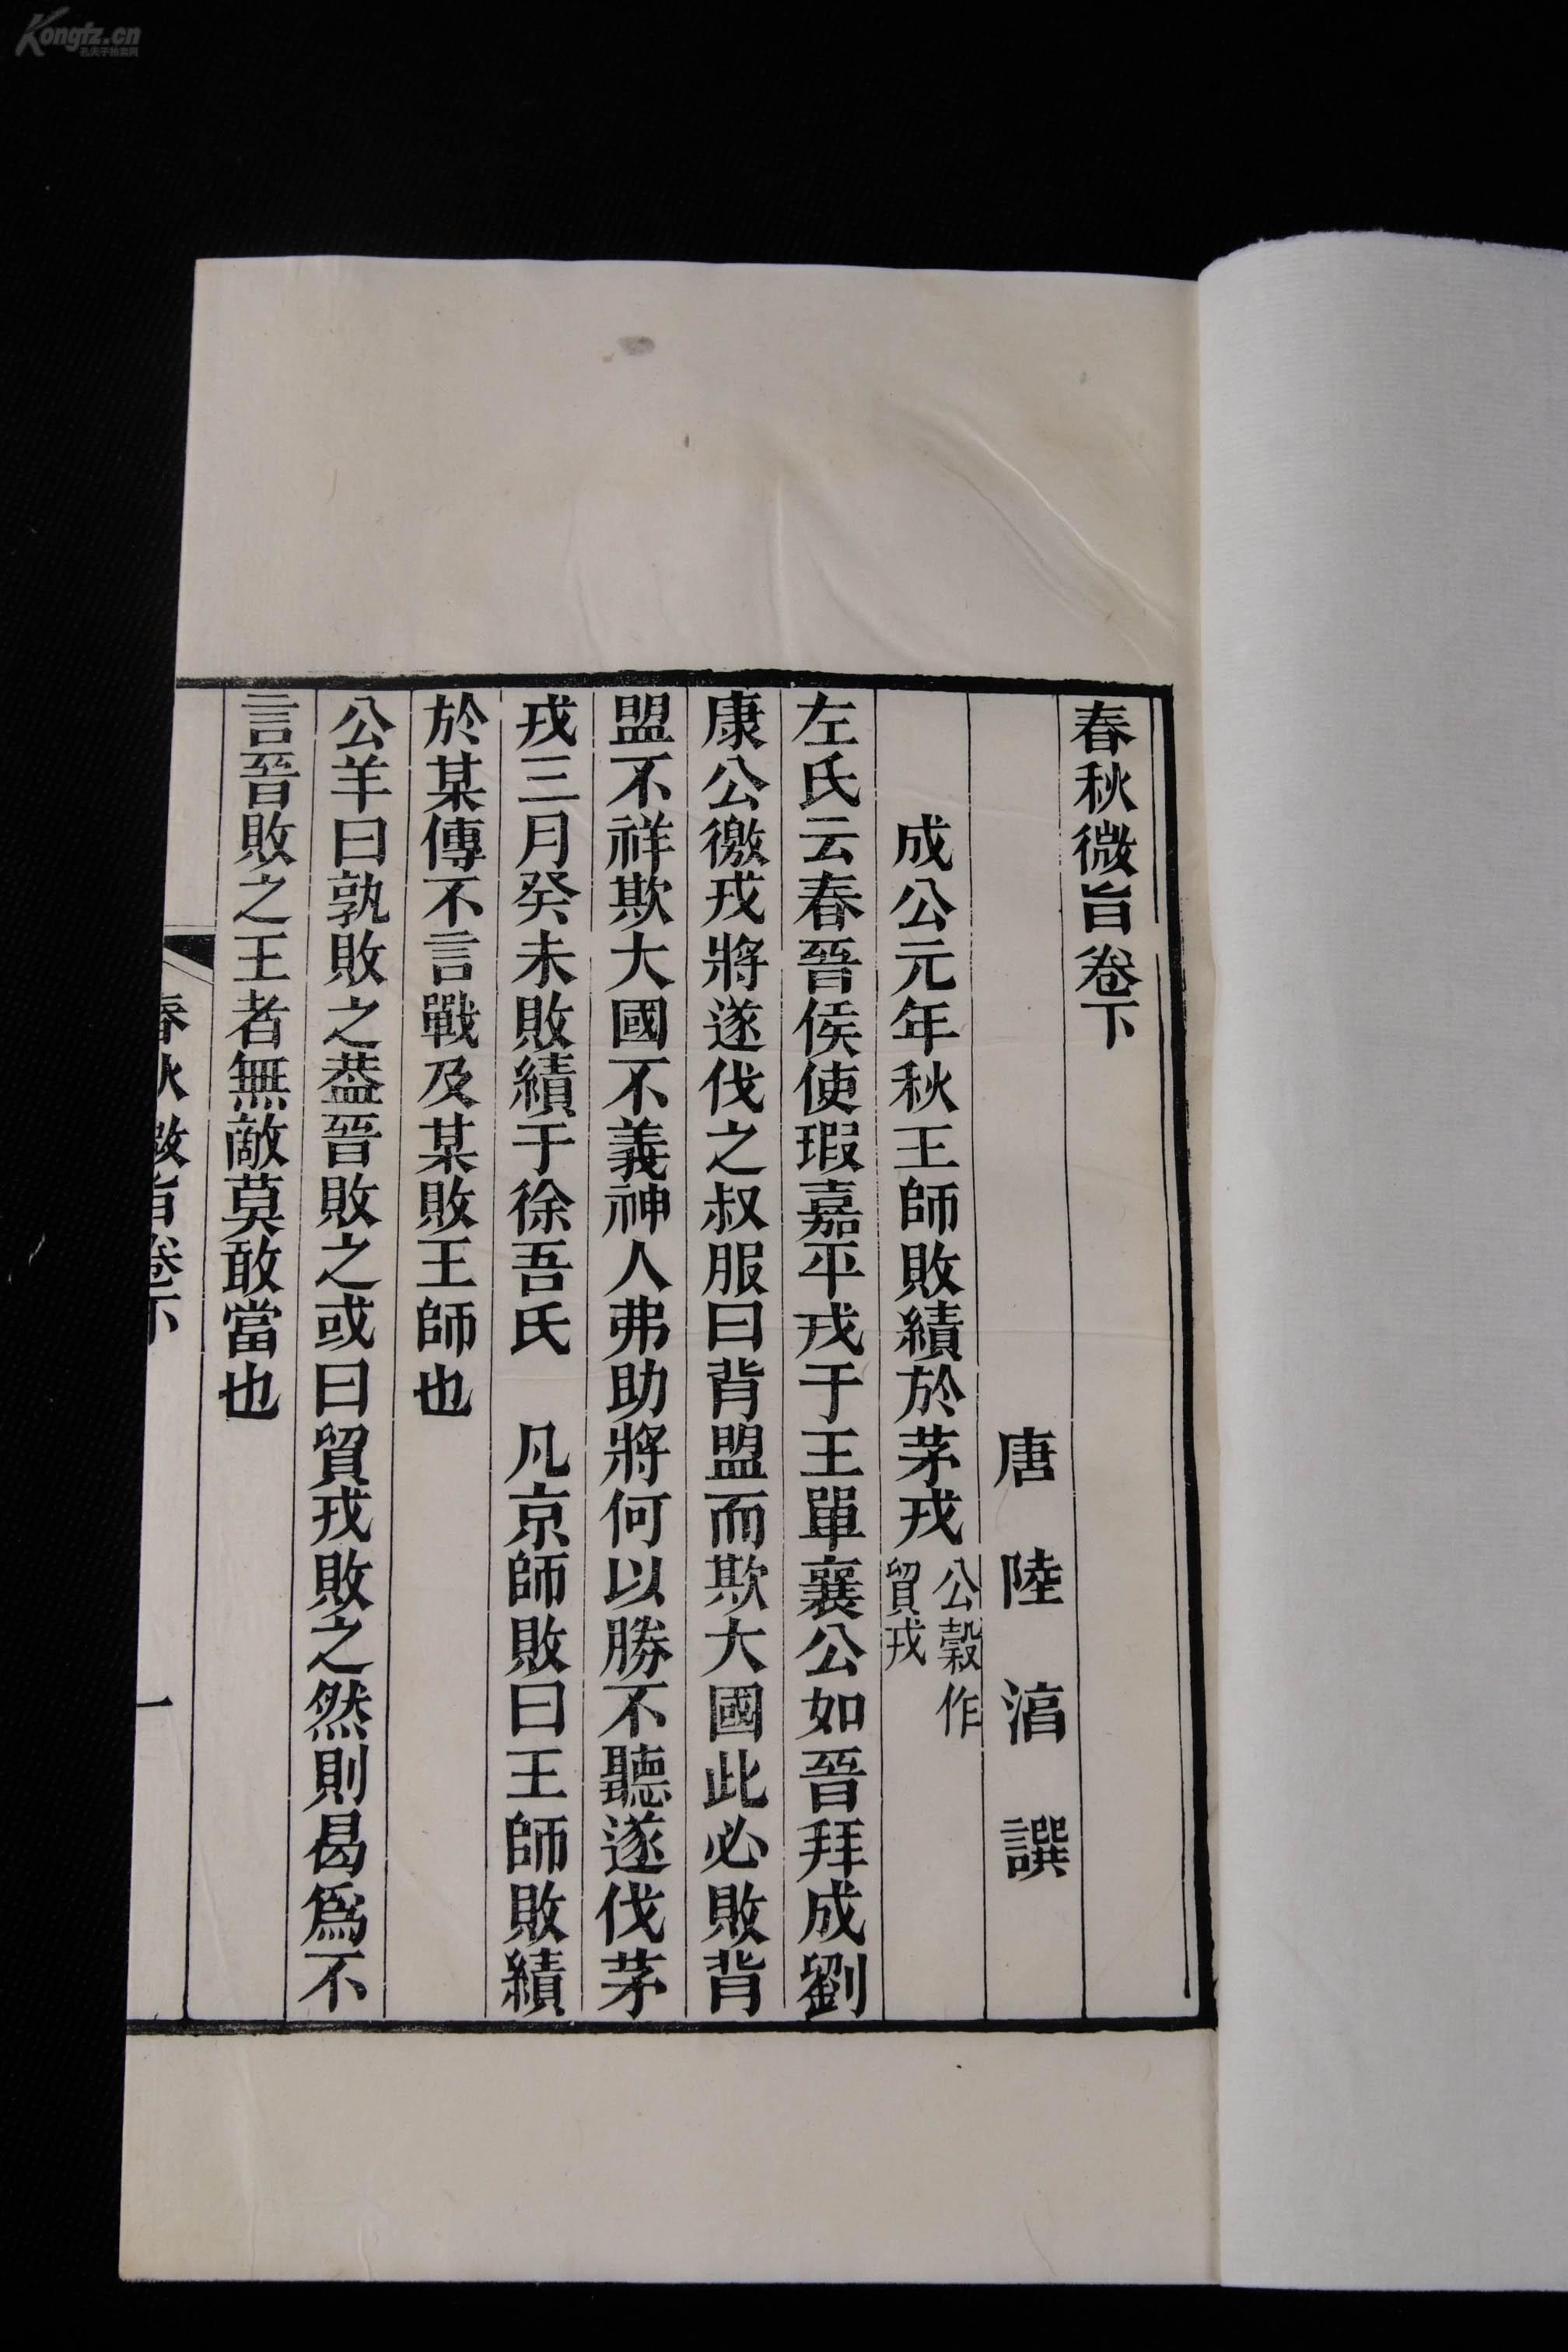 春秋微旨卷下
唐陸淳譔
成公元年秋王師敗績於茅戎公穀作貿戎
左氏云春晉侯使瑕嘉平戎于王單襄公如晉拜成劉
康公徼戎將遂伐之叔服曰背盟而欺大國此必敗背
盟不祥欺大國不義神人弗助將何以勝不聽遂伐茅
戎三月癸未敗績于徐吾氏　凡京師敗曰王師敗績
於某傳不言戰及某敗王師也
公羊曰孰敗之葢晉敗之或曰貿戎敗之然則曷爲不
言晉敗之王者無敵莫敢當也
春秋微旨卷下
一
Kongfz.cn
孔夫子拍卖网